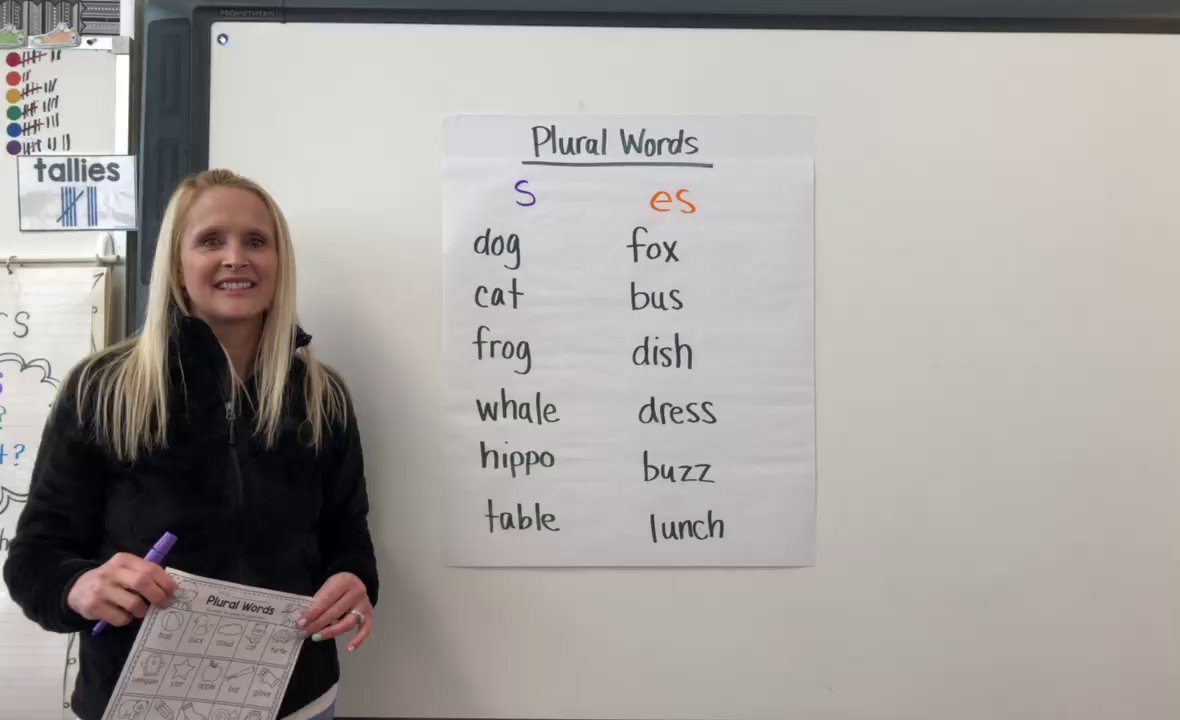 PROMETHEAN
tallies
Plural Words
s es
dog fox
cat bus
frog dish
whale dress
hippo buzz
table lunch
Plural Words
ball duck cloud cat turtle
penguin star apple bat glove